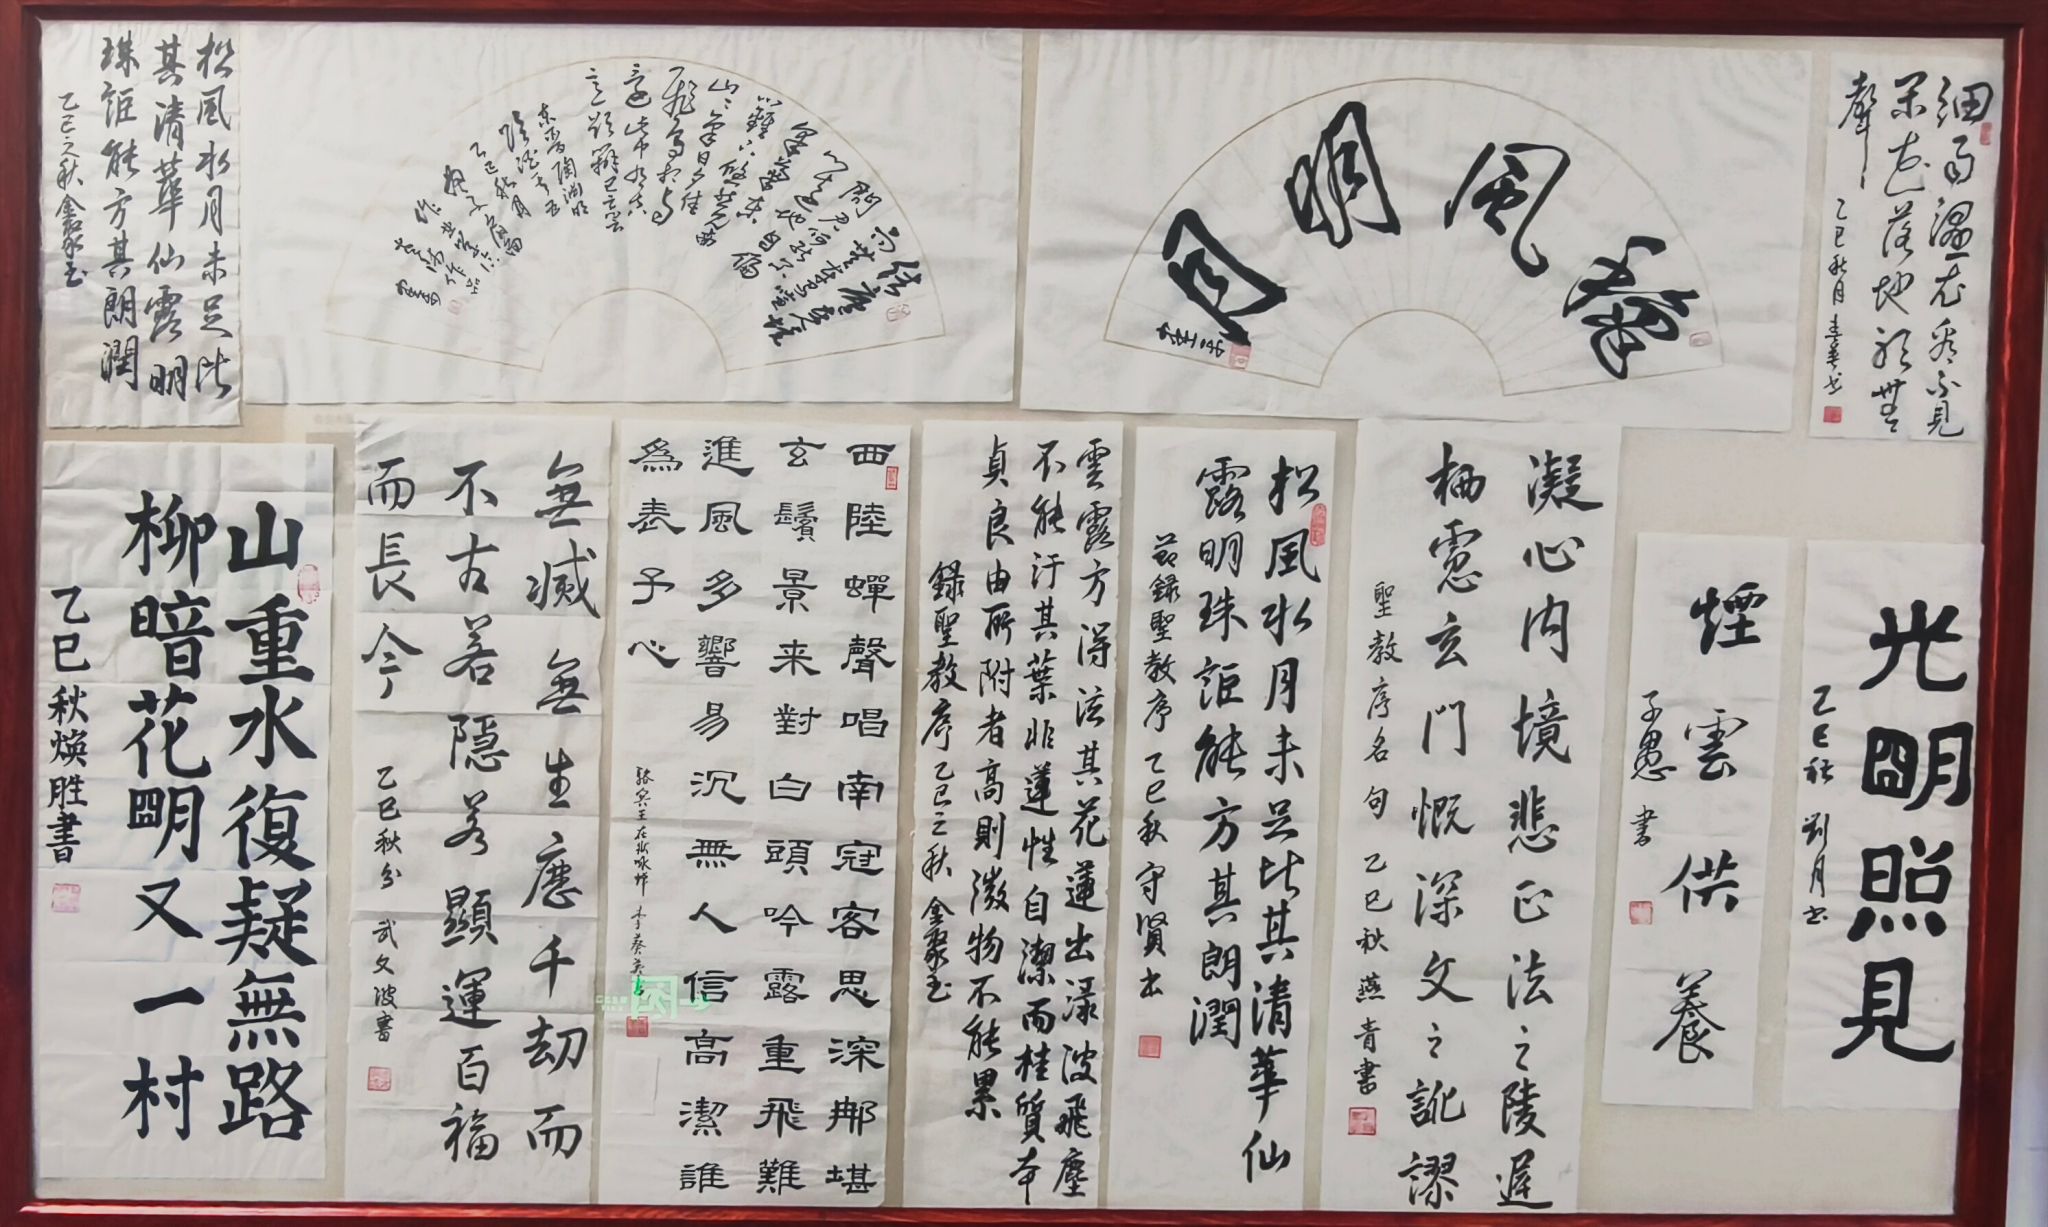 細雨濕衣看不見
閑花落地聽無
聲
乙巳秋月
風明月
結廬在人境
而無車馬喧
問君何能爾
心遠地自偏
采菊東
籬下悠然見南
山山氣日夕佳
飛鳥相与
還此中有真
意欲辯已忘言
東晋陶渊明
飲酒其五
乙巳秋月
松風水月未足比
其清華仙露明
珠詎能方其朗潤
乙巳之秋金聚玉
光明照見
乙巳秋 劉月书
煙雲供養
子愚書
凝心内境悲正法之陵遲
栖慮玄門慨深文之訛謬
聖教序名句 乙巳秋 燕青書
松風水月未足比其清華仙
露明珠詎能方其朗潤
節録聖教序 乙巳秋守賢书
雲露方得泫其花蓮出渌波飛塵
不能汙其葉非蓮性自潔而桂質本
貞良由所附者高則微物不能累
録聖教序 乙巳之秋 金聚玉
西陸蟬聲唱南冠客思深那堪
玄鬢景来對白頭吟露重飛難
進風多響易沉無人信高潔誰
為表予心
駱賓王在獄咏蟬 李葵英书
無滅無生歷千劫而
不古若隱若顯運百福
而長今
乙巳秋分 武文波書
山重水復疑無路
柳暗花明又一村
乙巳秋焕胜書